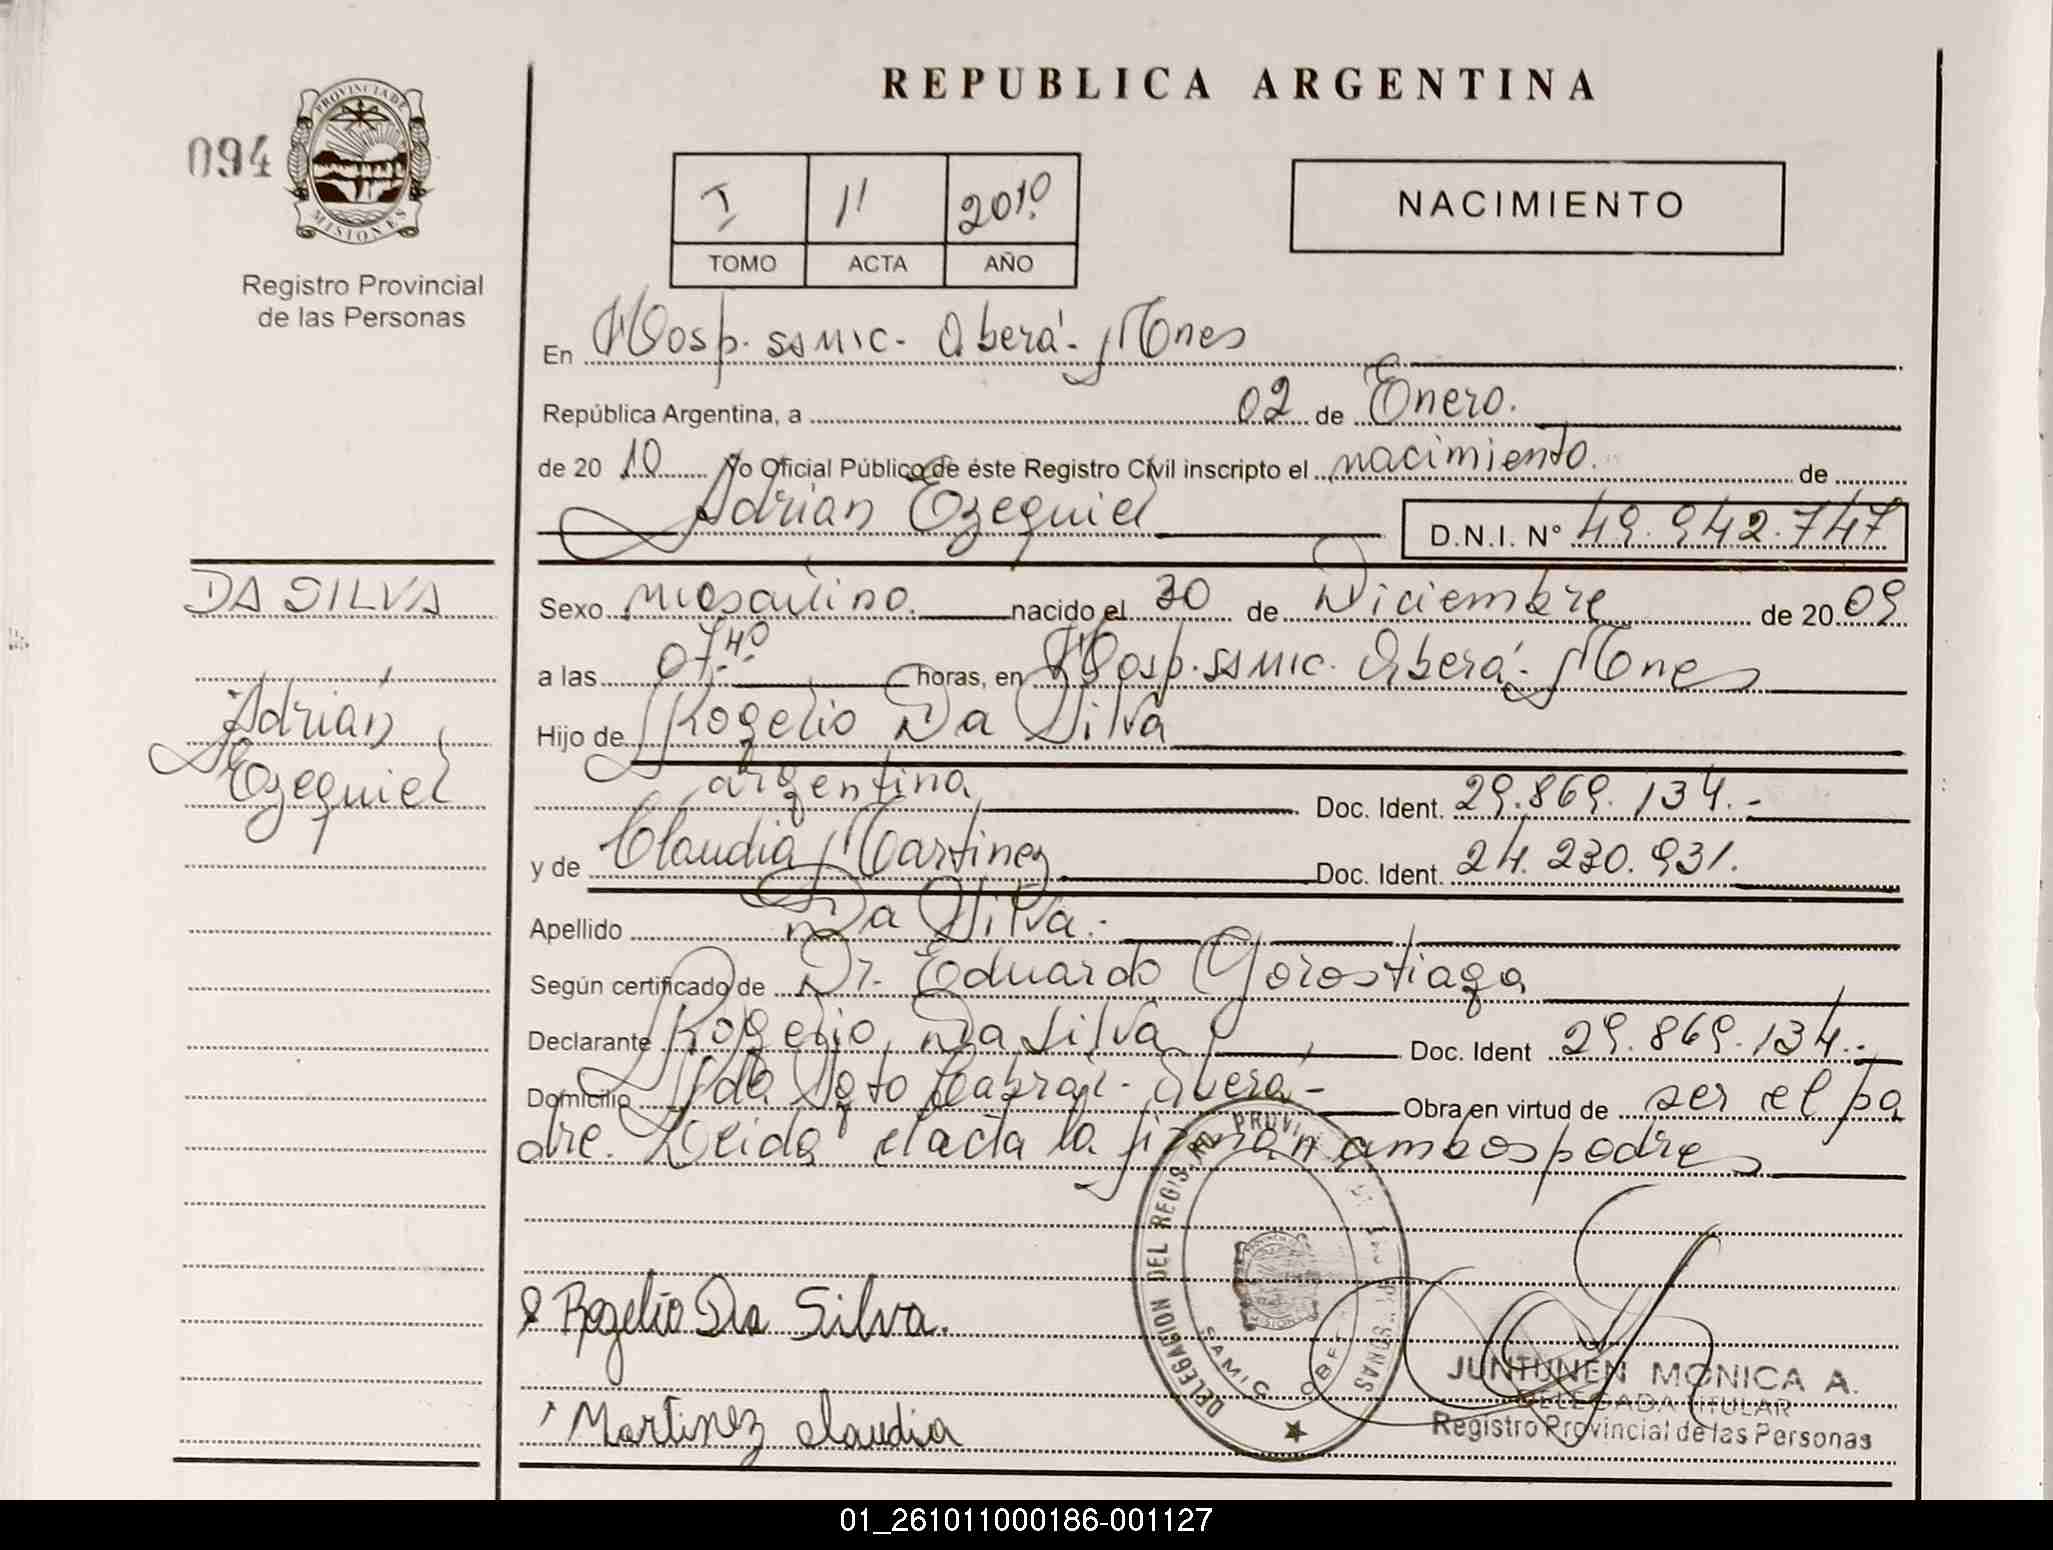 REPUBLICA ARGENTINA
094
PROVINCIA DE
MISIONES
Registro Provincial
de las Personas
I 11 2010
TOMO ACTA AÑO
NACIMIENTO
En Hosp. SAMIC. Oberá. Mnes
República Argentina, a 02 de Enero.
de 20 10 Yo Oficial Público de éste Registro Civil inscripto el nacimiento. de
Adrián Ezequiel D.N.I. Nº 49.942.747
DA SILVA
Adrián
Ezequiel
Sexo masculino. nacido el 30 de Diciembre de 20 09
a las 07.40 horas, en Hosp. SAMIC. Oberá. Mnes
Hijo de Rogelio Da Silva
argentina Doc. Ident. 29.869.134.-
y de Claudia Martinez Doc. Ident. 24.230.931.
Apellido Da Silva.-
Según certificado de Dr. Eduardo Gorostiaga
Declarante Rogelio Da Silva Doc. Ident 29.869.134.-
Domicilio Cabral - Oberá - Obra en virtud de ser el pa
dre. Leida el acta la firman ambos padres
Rogelio Da Silva.
Martinez claudia
DELEGACION DEL REGIST
SAMIC OBE
JUNTUNEN MONICA A.
DELEGADA TITULAR
Registro Provincial de las Personas
01_261011000186-001127